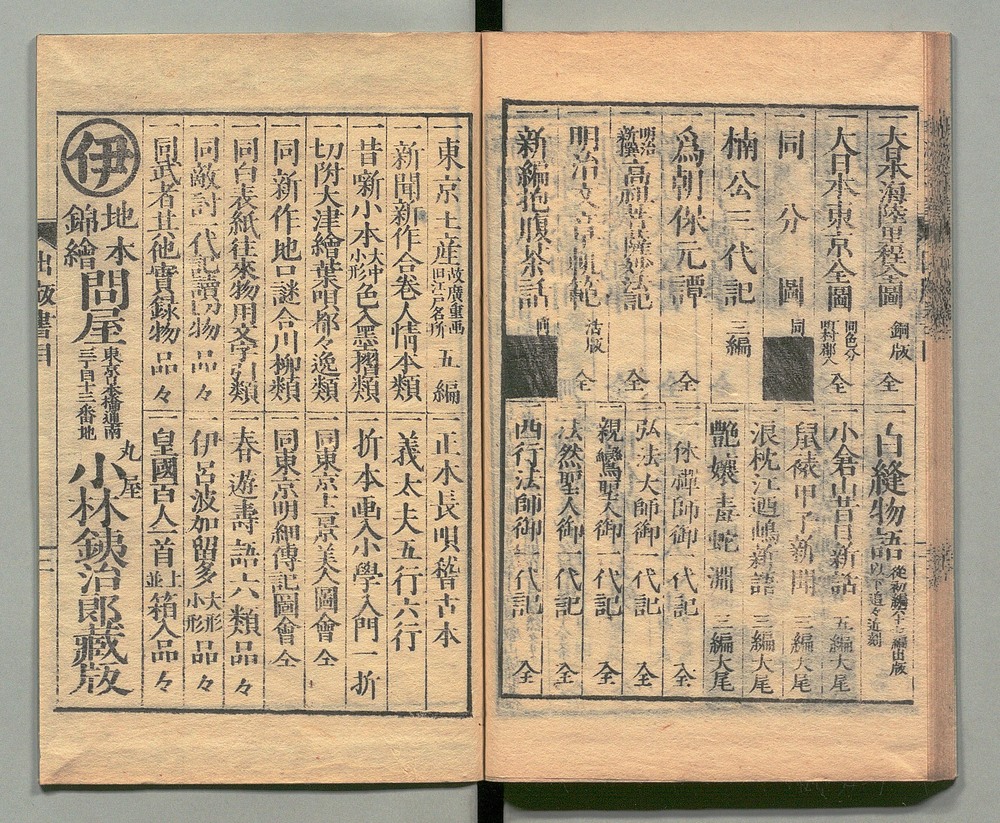 一大日本海陸里程全圖 銅版 全
一大日本東京全圖 同色分 全
一同分圖 同
一楠公三代記 三編
一為朝保元譚 全
一明治新撰高祖 記 全
一明治 記 活版 全
一新編抱腹茶話
一白縫物語 從初編六十 編出版 以下追々近刻
一小倉山昔日新話 五編大尾
一鼠裱甲子新聞 三編大尾
一浪枕江西嶋新語 三編大尾
一艷孃毒蛇淵 三編大尾
一一休禪師御一代記 全
一弘法大師御一代記 全
一親鸞聖人御一代記 全
一法然聖人御一代記 全
一西行法師御一代記 全
一東京土産 故廣重画 旧江戸名所 五編
一新聞新作合卷人情本類
一昔噺小本 大中小形 色入墨摺類
一切附大津繪葉唄都々逸類
一同新作地口謎合川柳類
一同白表紙往來物用文字引類
一同敵討一代記讀切物品々
一同武者其他實録物品々
一正本長唄稽古本
一義太夫五行六行
一折本画入小學入門一折
一同東京土景美人圖會全
一同東京明細傳記圖會全
一春遊壽語六類品々
一伊呂波加留多 大形小形 品々
一皇國百人一首 上並 箱入品々
伊
地本
錦繪
問屋
東京京橋通南
三丁目十三番地
丸屋
小林銕治郎藏版
出版書目